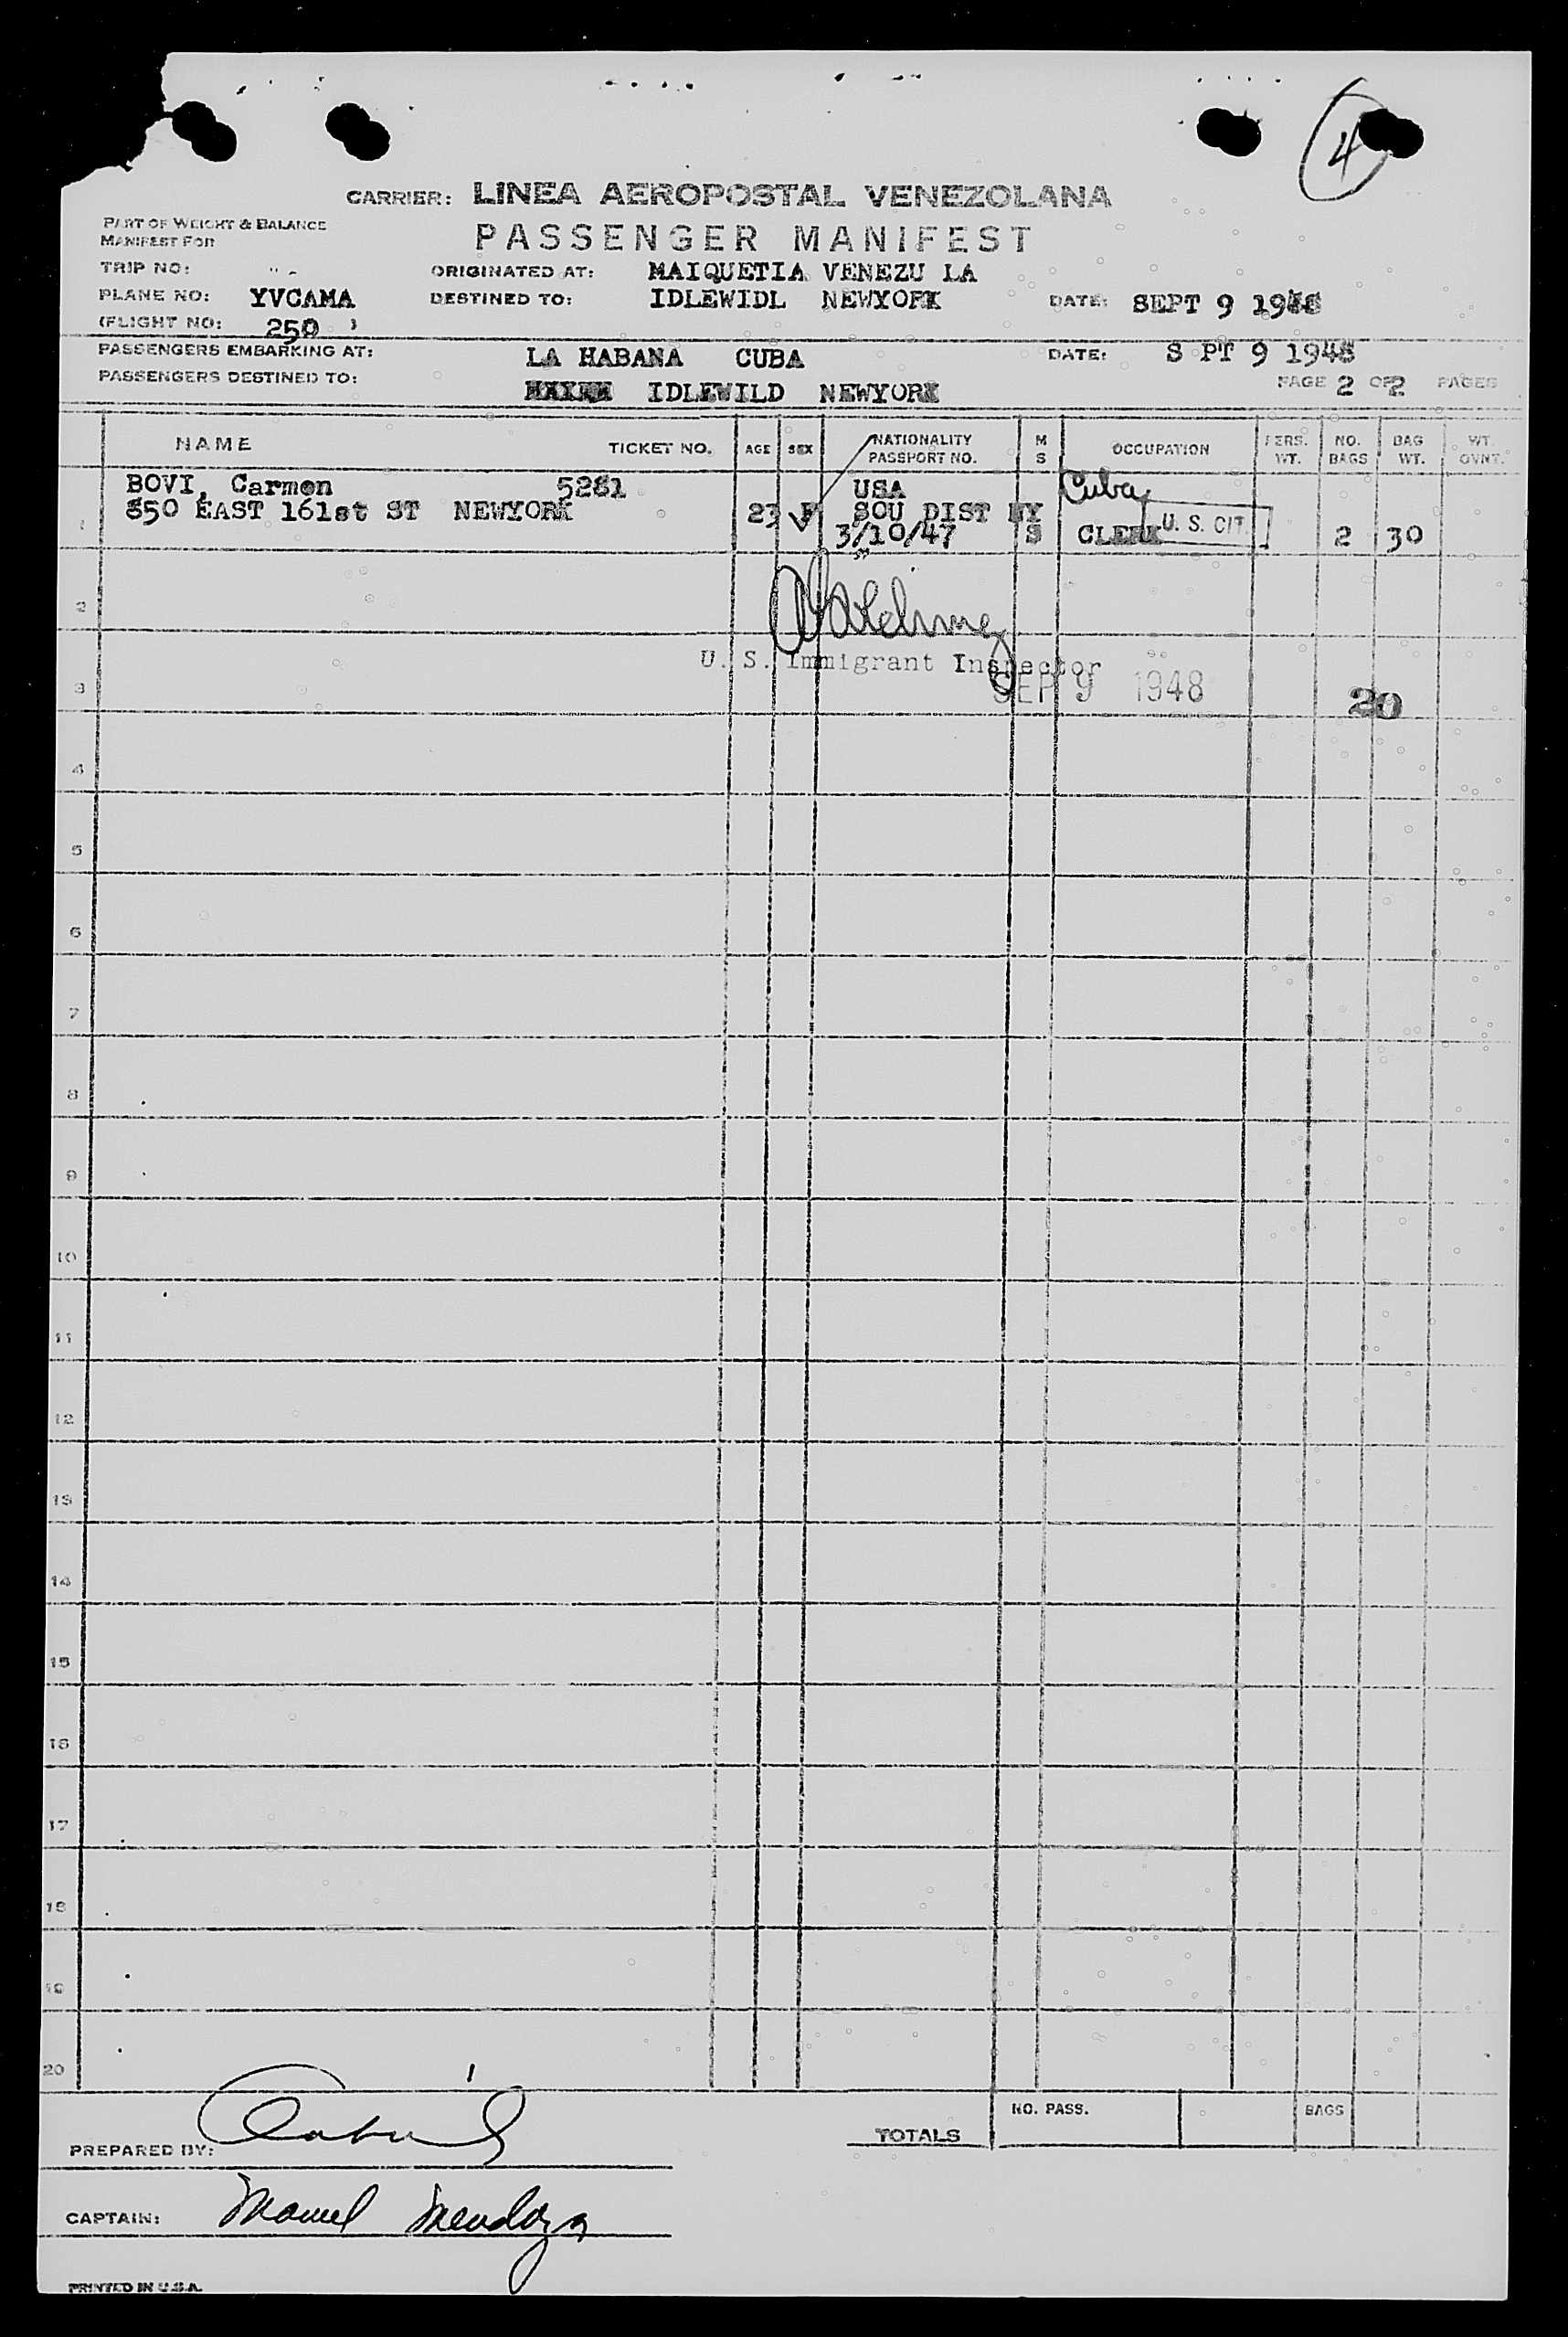 4
CARRIER: LINEA AEROPOSTAL VENEZOLANA
PART OF WEIGHT & BALANCE
MANIFEST FOR
PASSENGER MANIFEST
TRIP NO: ORIGINATED AT: MAIQUETIA VENEZU LA
PLANE NO: YVCAMA DESTINED TO: IDLEWIDL NEWYORK DATE: SEPT 9 1948
(FLIGHT NO: 250 )
PASSENGERS EMBARKING AT: LA HABANA CUBA DATE: S PT 9 1948
PASSENGERS DESTINED TO: IDLEWILD NEWYORK PAGE 2 OF 2 PAGES
NAME TICKET NO. AGE SEX NATIONALITY PASSPORT NO. M S OCCUPATION PERS. WT. NO. BAGS BAG WT. WT. OVNT.
BOVI, Carmen 5281 USA Cuba
850 EAST 161st ST NEWYORK 23 F SOU DIST NY U. S. CIT.
1 3/10/47 S CLERK 2 30
2
U. S. Immigrant Inspector
3 SEP 9 1948 20
4
5
6
7
8
9
10
11
12
13
14
15
16
17
18
19
20
NO. PASS. BAGS
PREPARED BY: TOTALS
CAPTAIN: Manuel Mendoza
PRINTED IN U.S.A.